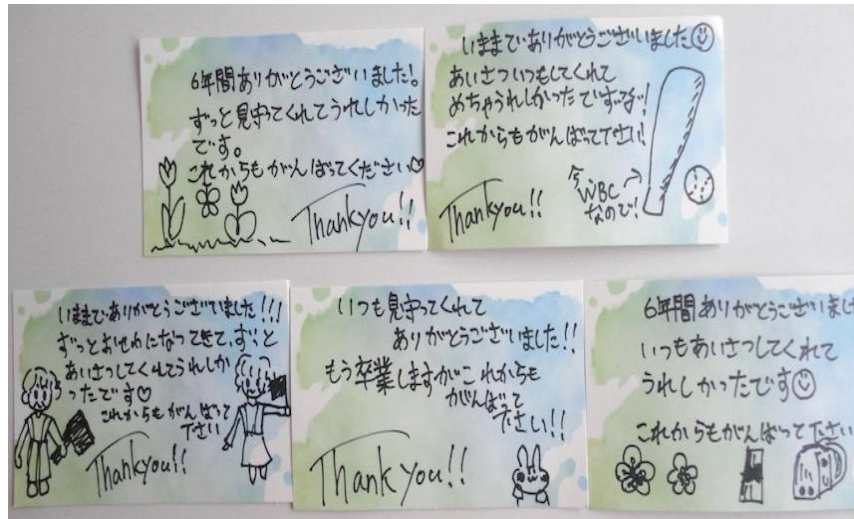 6年間ありがとうございました!
ずっと見守ってくれてうれしかった
です。
これからもがんばってください♡
Thankyou!!
いままでありがとうございました☺
あいさついつもしてくれて
めちゃうれしかったです!
これからもがんばって下さい!
今WBC
なので!
Thankyou!!
いままでありがとうございました!!!
ずっとおせわになってきて、ずっと
あいさつしてくれてうれしか
ったです♡
これからもがんばって
下さい
Thankyou!!
いつも見守ってくれて
ありがとうございました!!
もう卒業しますがこれからも
がんばって
下さい!!
Thank you!!
6年間ありがとうございました
いつもあいさつしてくれて
うれしかったです☺
これからもがんばって下さい